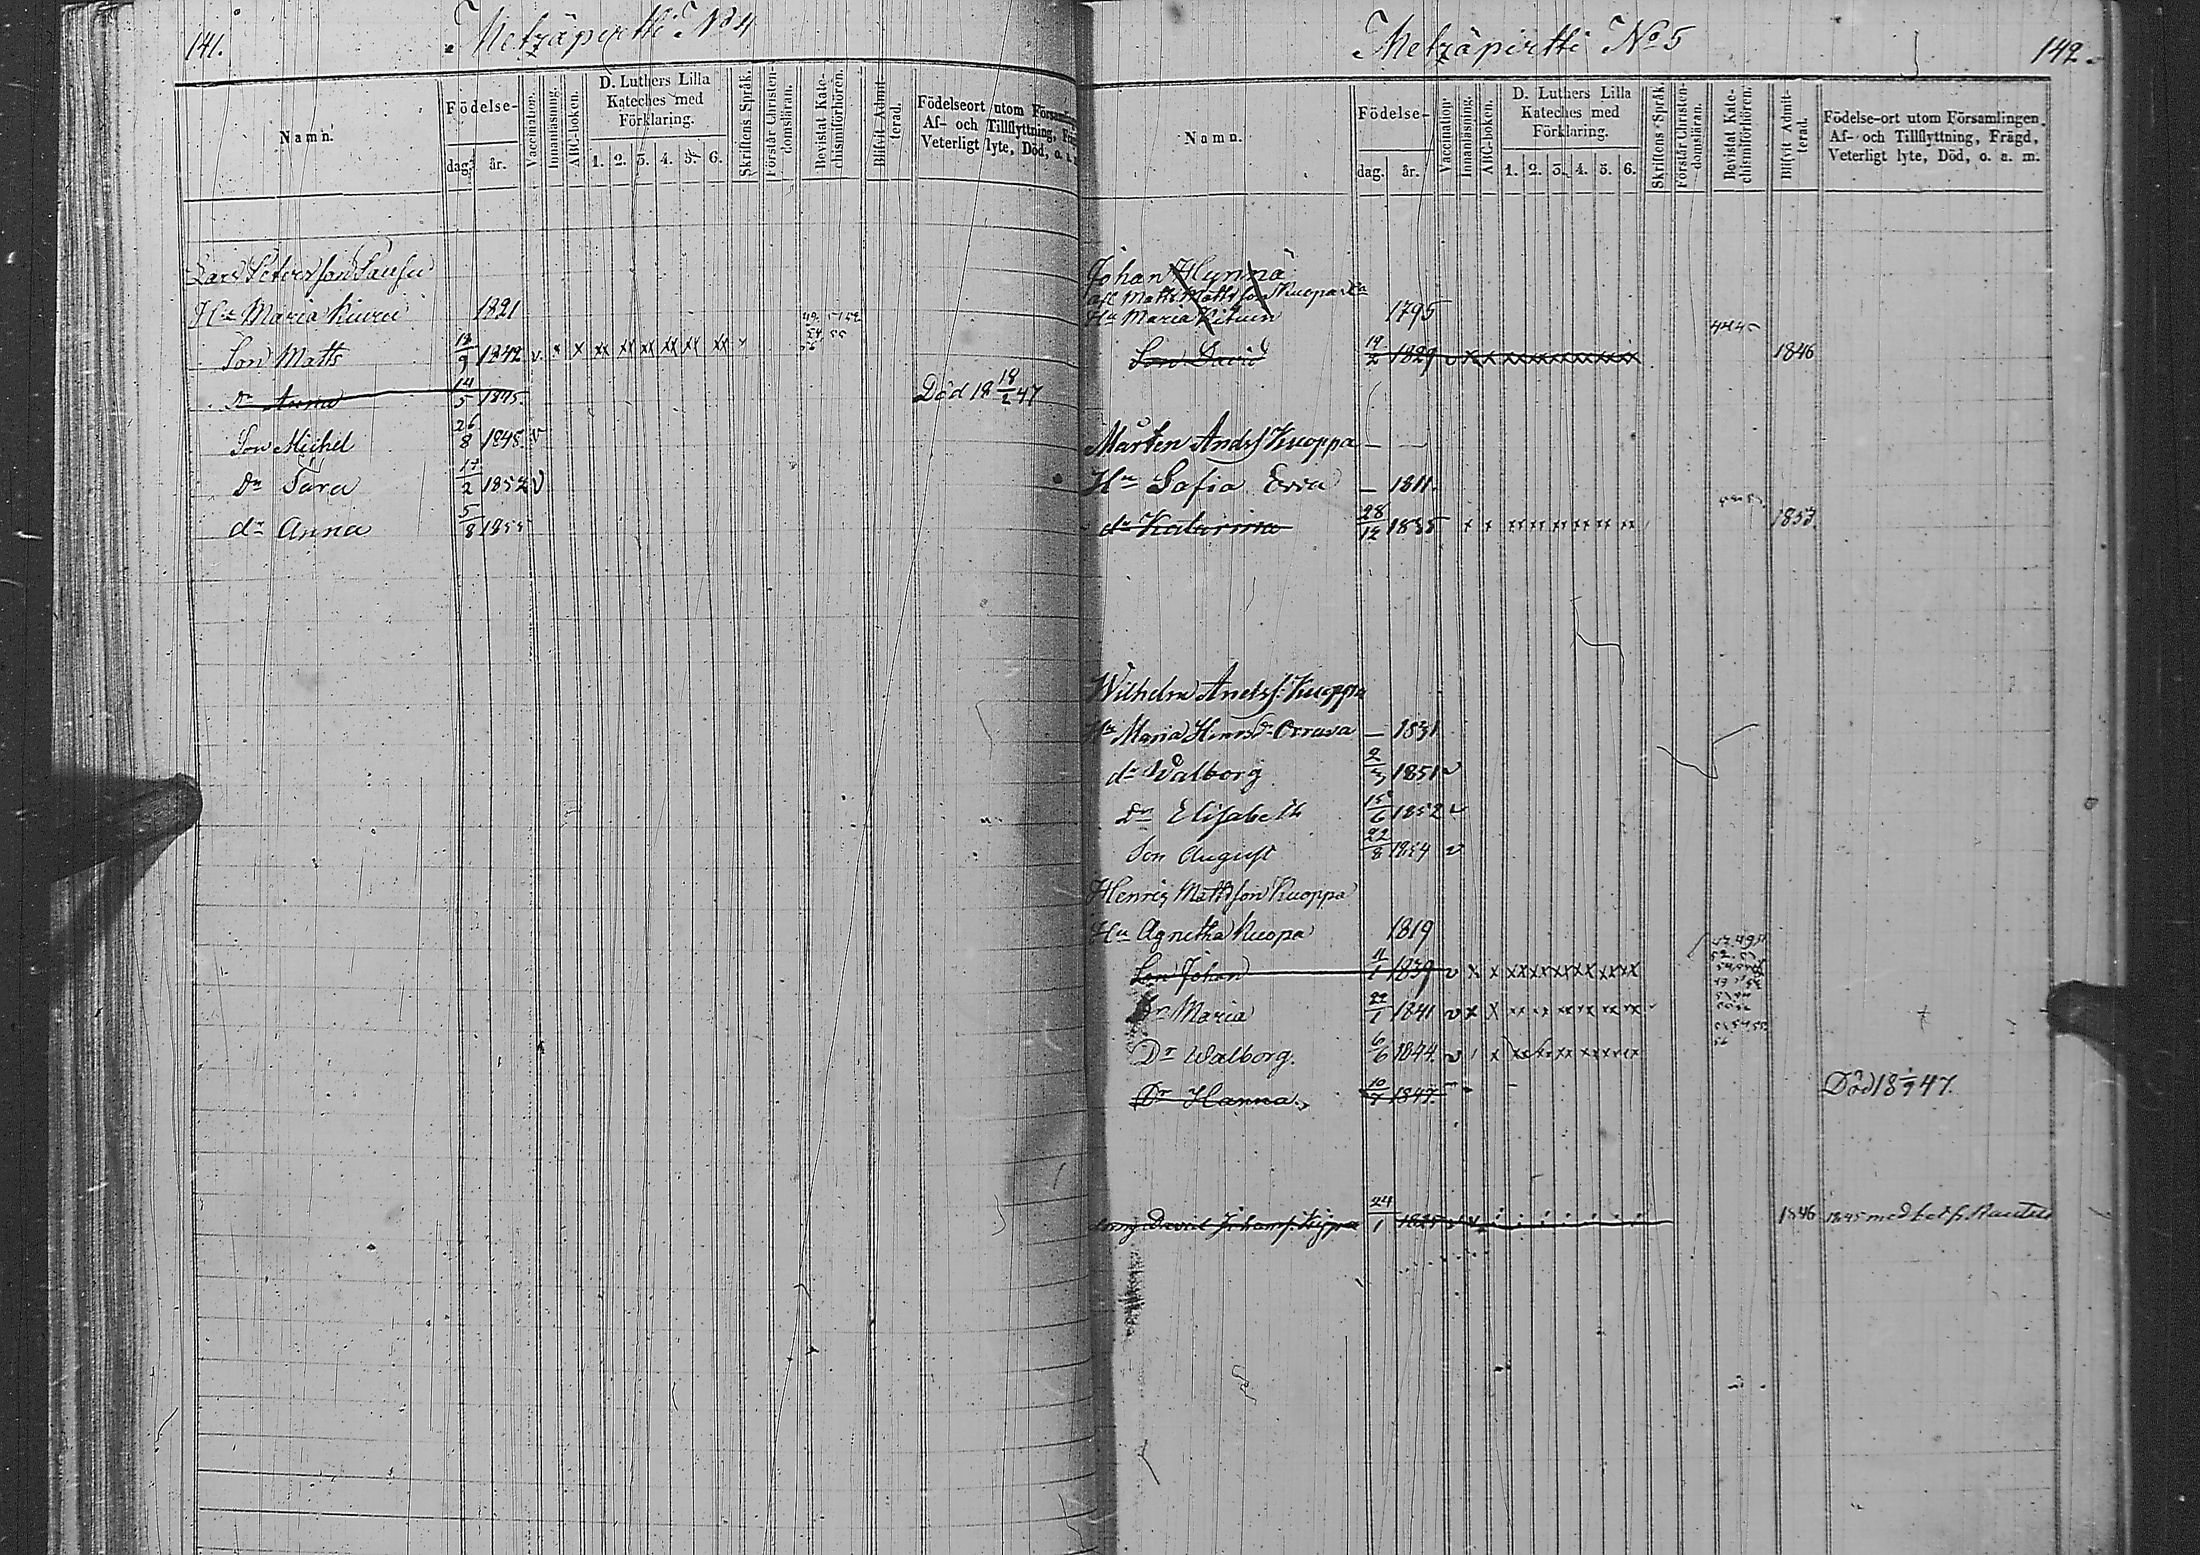 141.
Metzäpirtti No 4
Namn.
Födelse-
dag. år.
Vaccination.
Innanläsning.
ABC-boken.
D. Luthers Lilla
Kateches med
Förklaring.
1. 2. 3. 4. 5. 6.
Skriftens Språk.
Förstår Christen-
domsläran.
Bevistat Kate-
chismiförhören.
Blifvit Admit-
terad.
Födelseort utom
Af- och Tillflyttning,
Veterligt lyte, Död, o.
Lars Petersson
Hu Maria Kiuru 1821
Son Matts 13/9 1842 v x x xx xx xx xx xx xx
Dr Anna 14/5 Död 18 18/2 47
Son Michel 26/8 1848 v
Dr Sara 17/2 1852 v
dr Anna 5/8 1855
Metzäpirtti No 5
142.
Namn.
Födelse-
dag. år.
Vaccination.
Innanläsning.
ABC-boken.
D. Luthers Lilla
Kateches med
Förklaring.
1. 2. 3. 4. 5. 6.
Skriftens Språk.
Förstår Christen-
domsläran.
Bevistat Kate-
chismiförhören.
Blifvit Admit-
terad.
Födelse-ort utom Församlingen,
Af- och Tillflyttning, Frägd,
Veterligt lyte, Död, o. a. m.
Johan Hynnä
Matts Mattsson
Hu Maria 1795
Son David 19/2 1829 v x x xx xx xx xx xx xx 1846
Mårten Andsf Kuoppa — —
Hu Sofia — 1811.
dr Katarina 28/12 1835 x x xx xx xx xx xx xx 1853
Wilhelm Andsf: Kuoppa
Hu Maria Henrsdr Orrava — 1831
dr Walborg 2/3 1851 v
Dr Elisabeth 15/6 1852 v
Son August 22/8 1854 v
Henric Mattsson Kuoppa
Hu Agnetha Kuopa 1819
Son Johan 11/1 1839 v x x xx xx xx xx xx xx
Dr Maria 22/1 1841 v x x xx xx xx xx xx xx
Dr Walborg. 6/6 1844. v x xx xx xx xx xx xx
Dr Hanna. 10/7 1847. Död 18 47.
David Johansf. 24/1 1825 1846 1845 med bet. f. Rautus